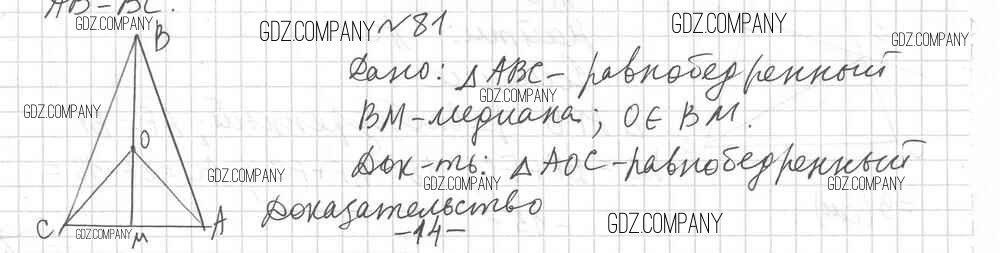 AB = BC.
GDZ.COMPANY
B
GDZ.COMPANY №81
GDZ.COMPANY
GDZ.COMPANY
Дано: △ABC - равнобедренный
GDZ.COMPANY
GDZ.COMPANY
BM - медиана; O ∈ BM.
O
Док-ть: △AOC - равнобедренный
GDZ.COMPANY
GDZ.COMPANY
GDZ.COMPANY
Доказательство
C
A
GDZ.COMPANY
M
-14-
GDZ.COMPANY